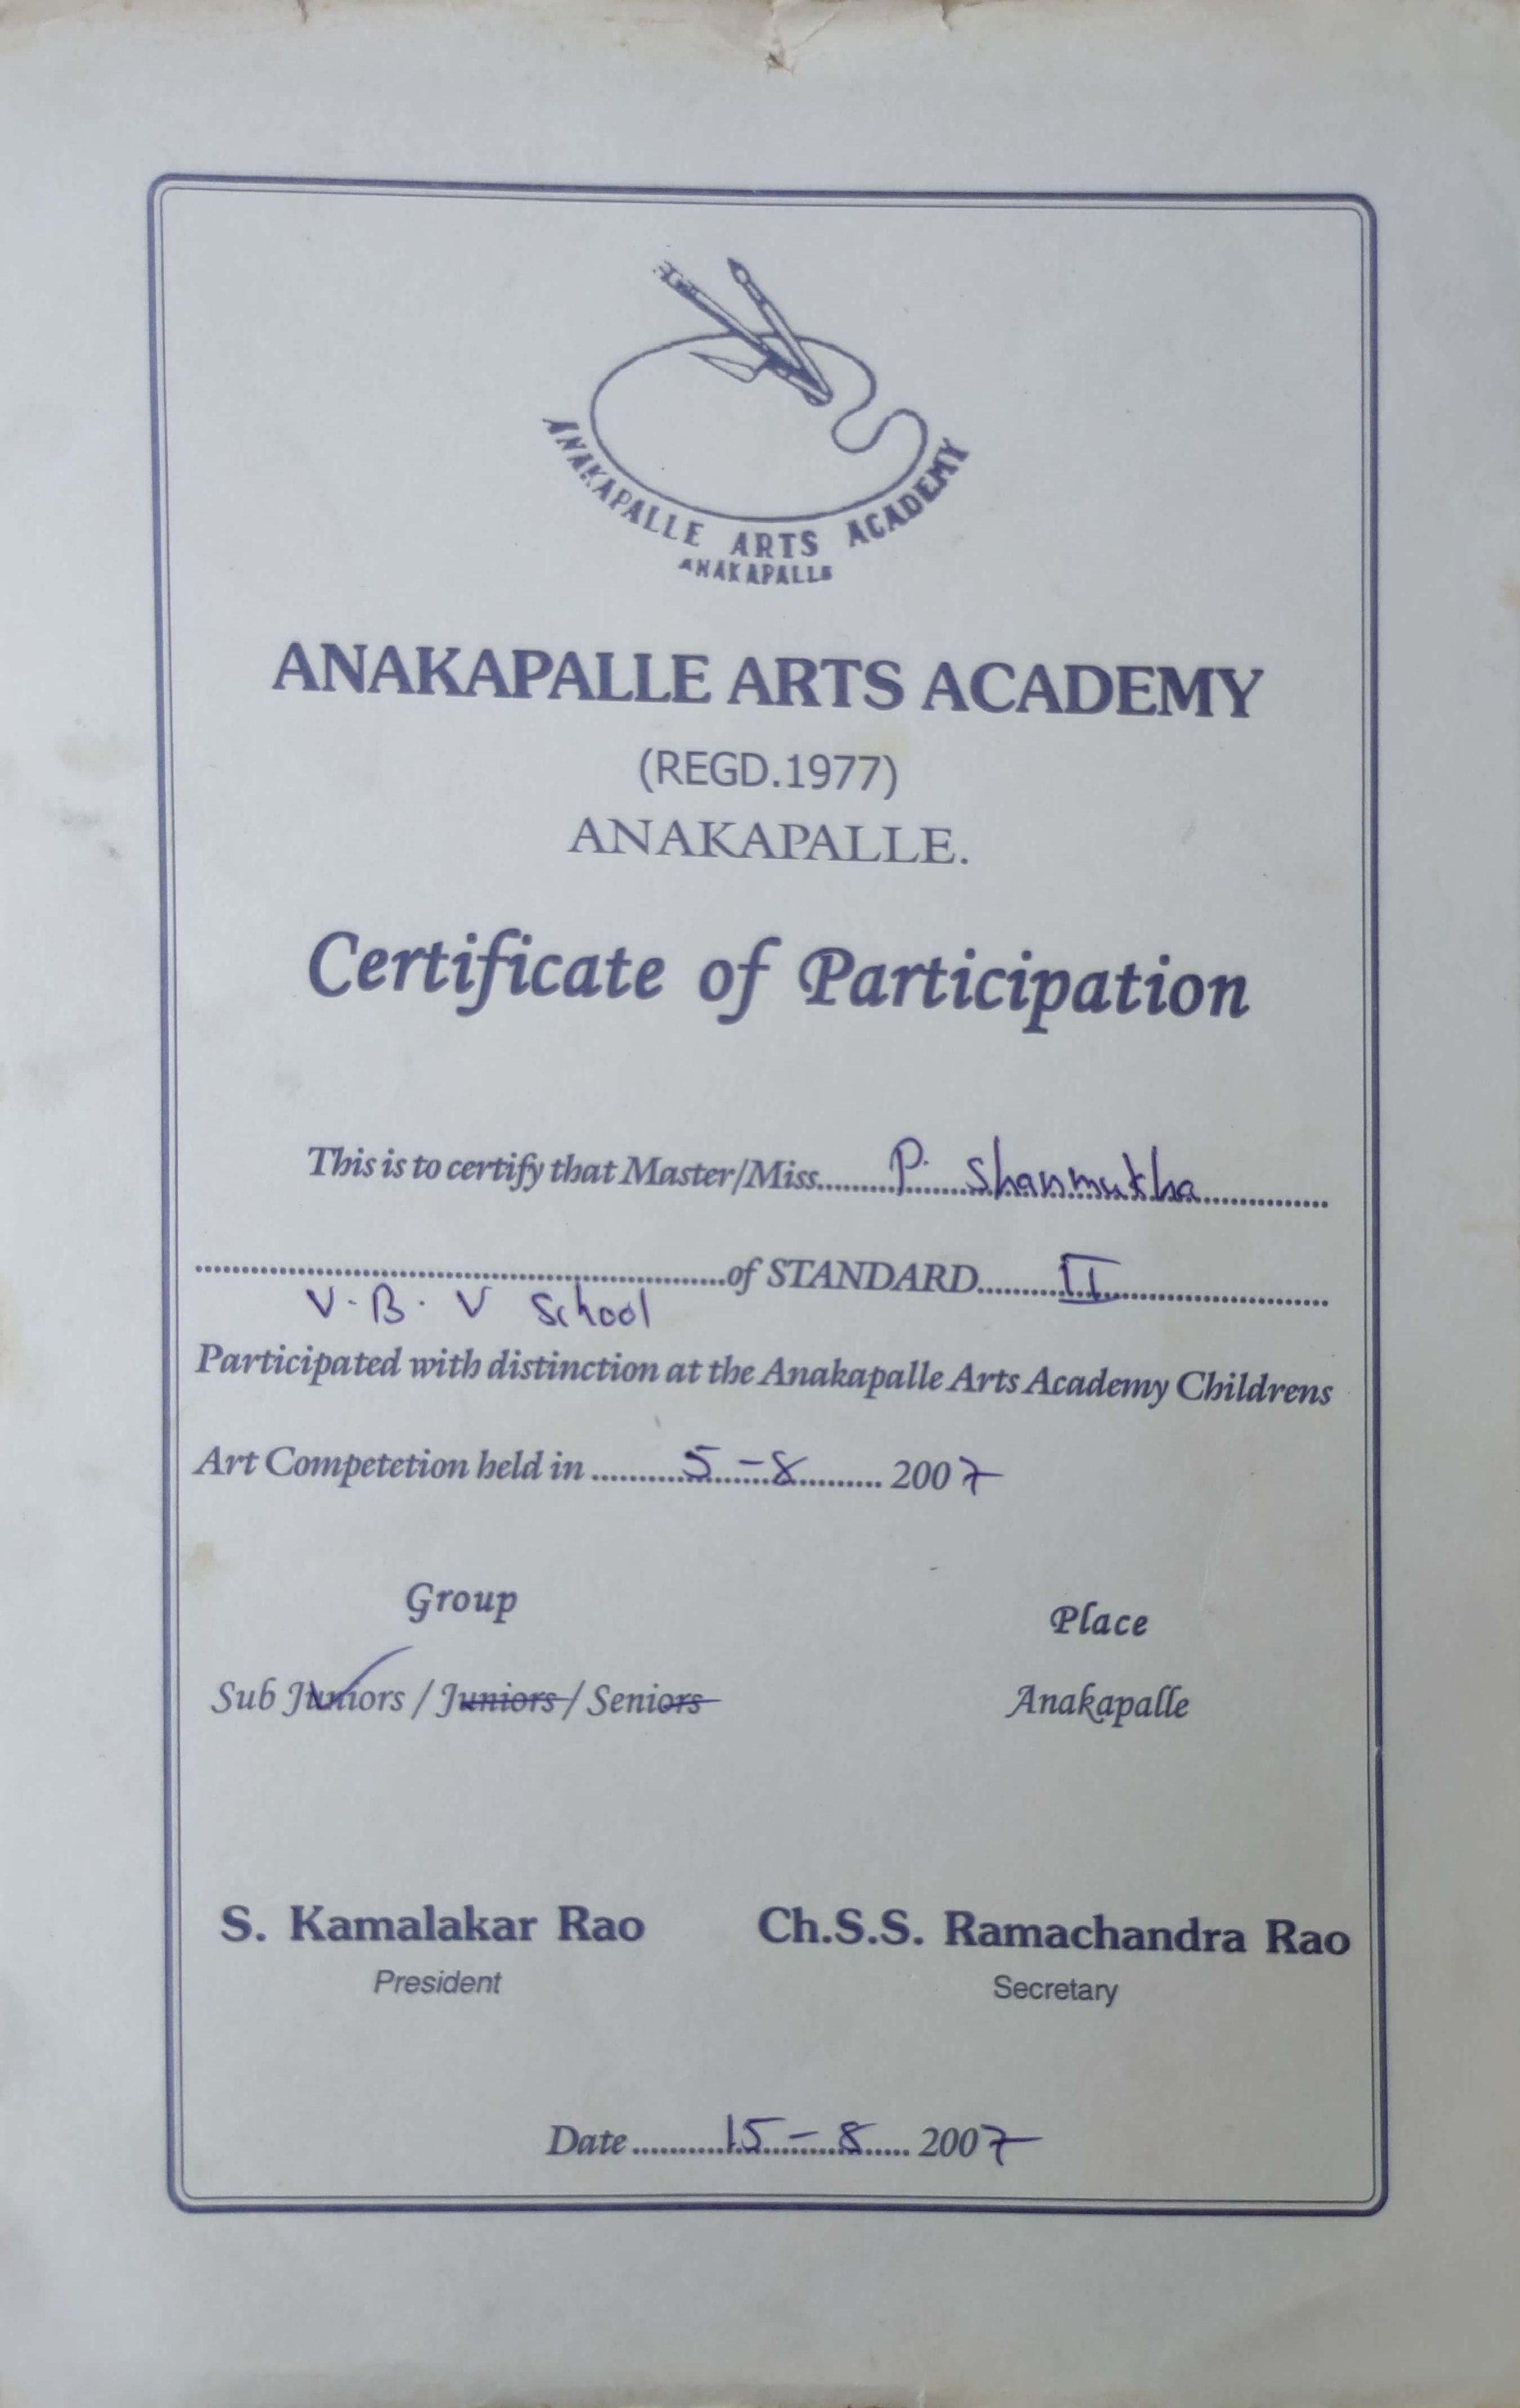 ANAKAPALLE ARTS ACADEMY
ANAKAPALLE
ANAKAPALLE ARTS ACADEMY
(REGD.1977)
ANAKAPALLE.
Certificate of Participation
This is to certify that Master/Miss..........P. Shanmukha..........
..........of STANDARD..........II..........
V. B. V School
Participated with distinction at the Anakapalle Arts Academy Childrens
Art Competetion held in ..........5-8.......... 2007
Group
Place
Sub Juniors / Juniors / Seniors
Anakapalle
S. Kamalakar Rao
Ch.S.S. Ramachandra Rao
President
Secretary
Date..........15-8..... 2007